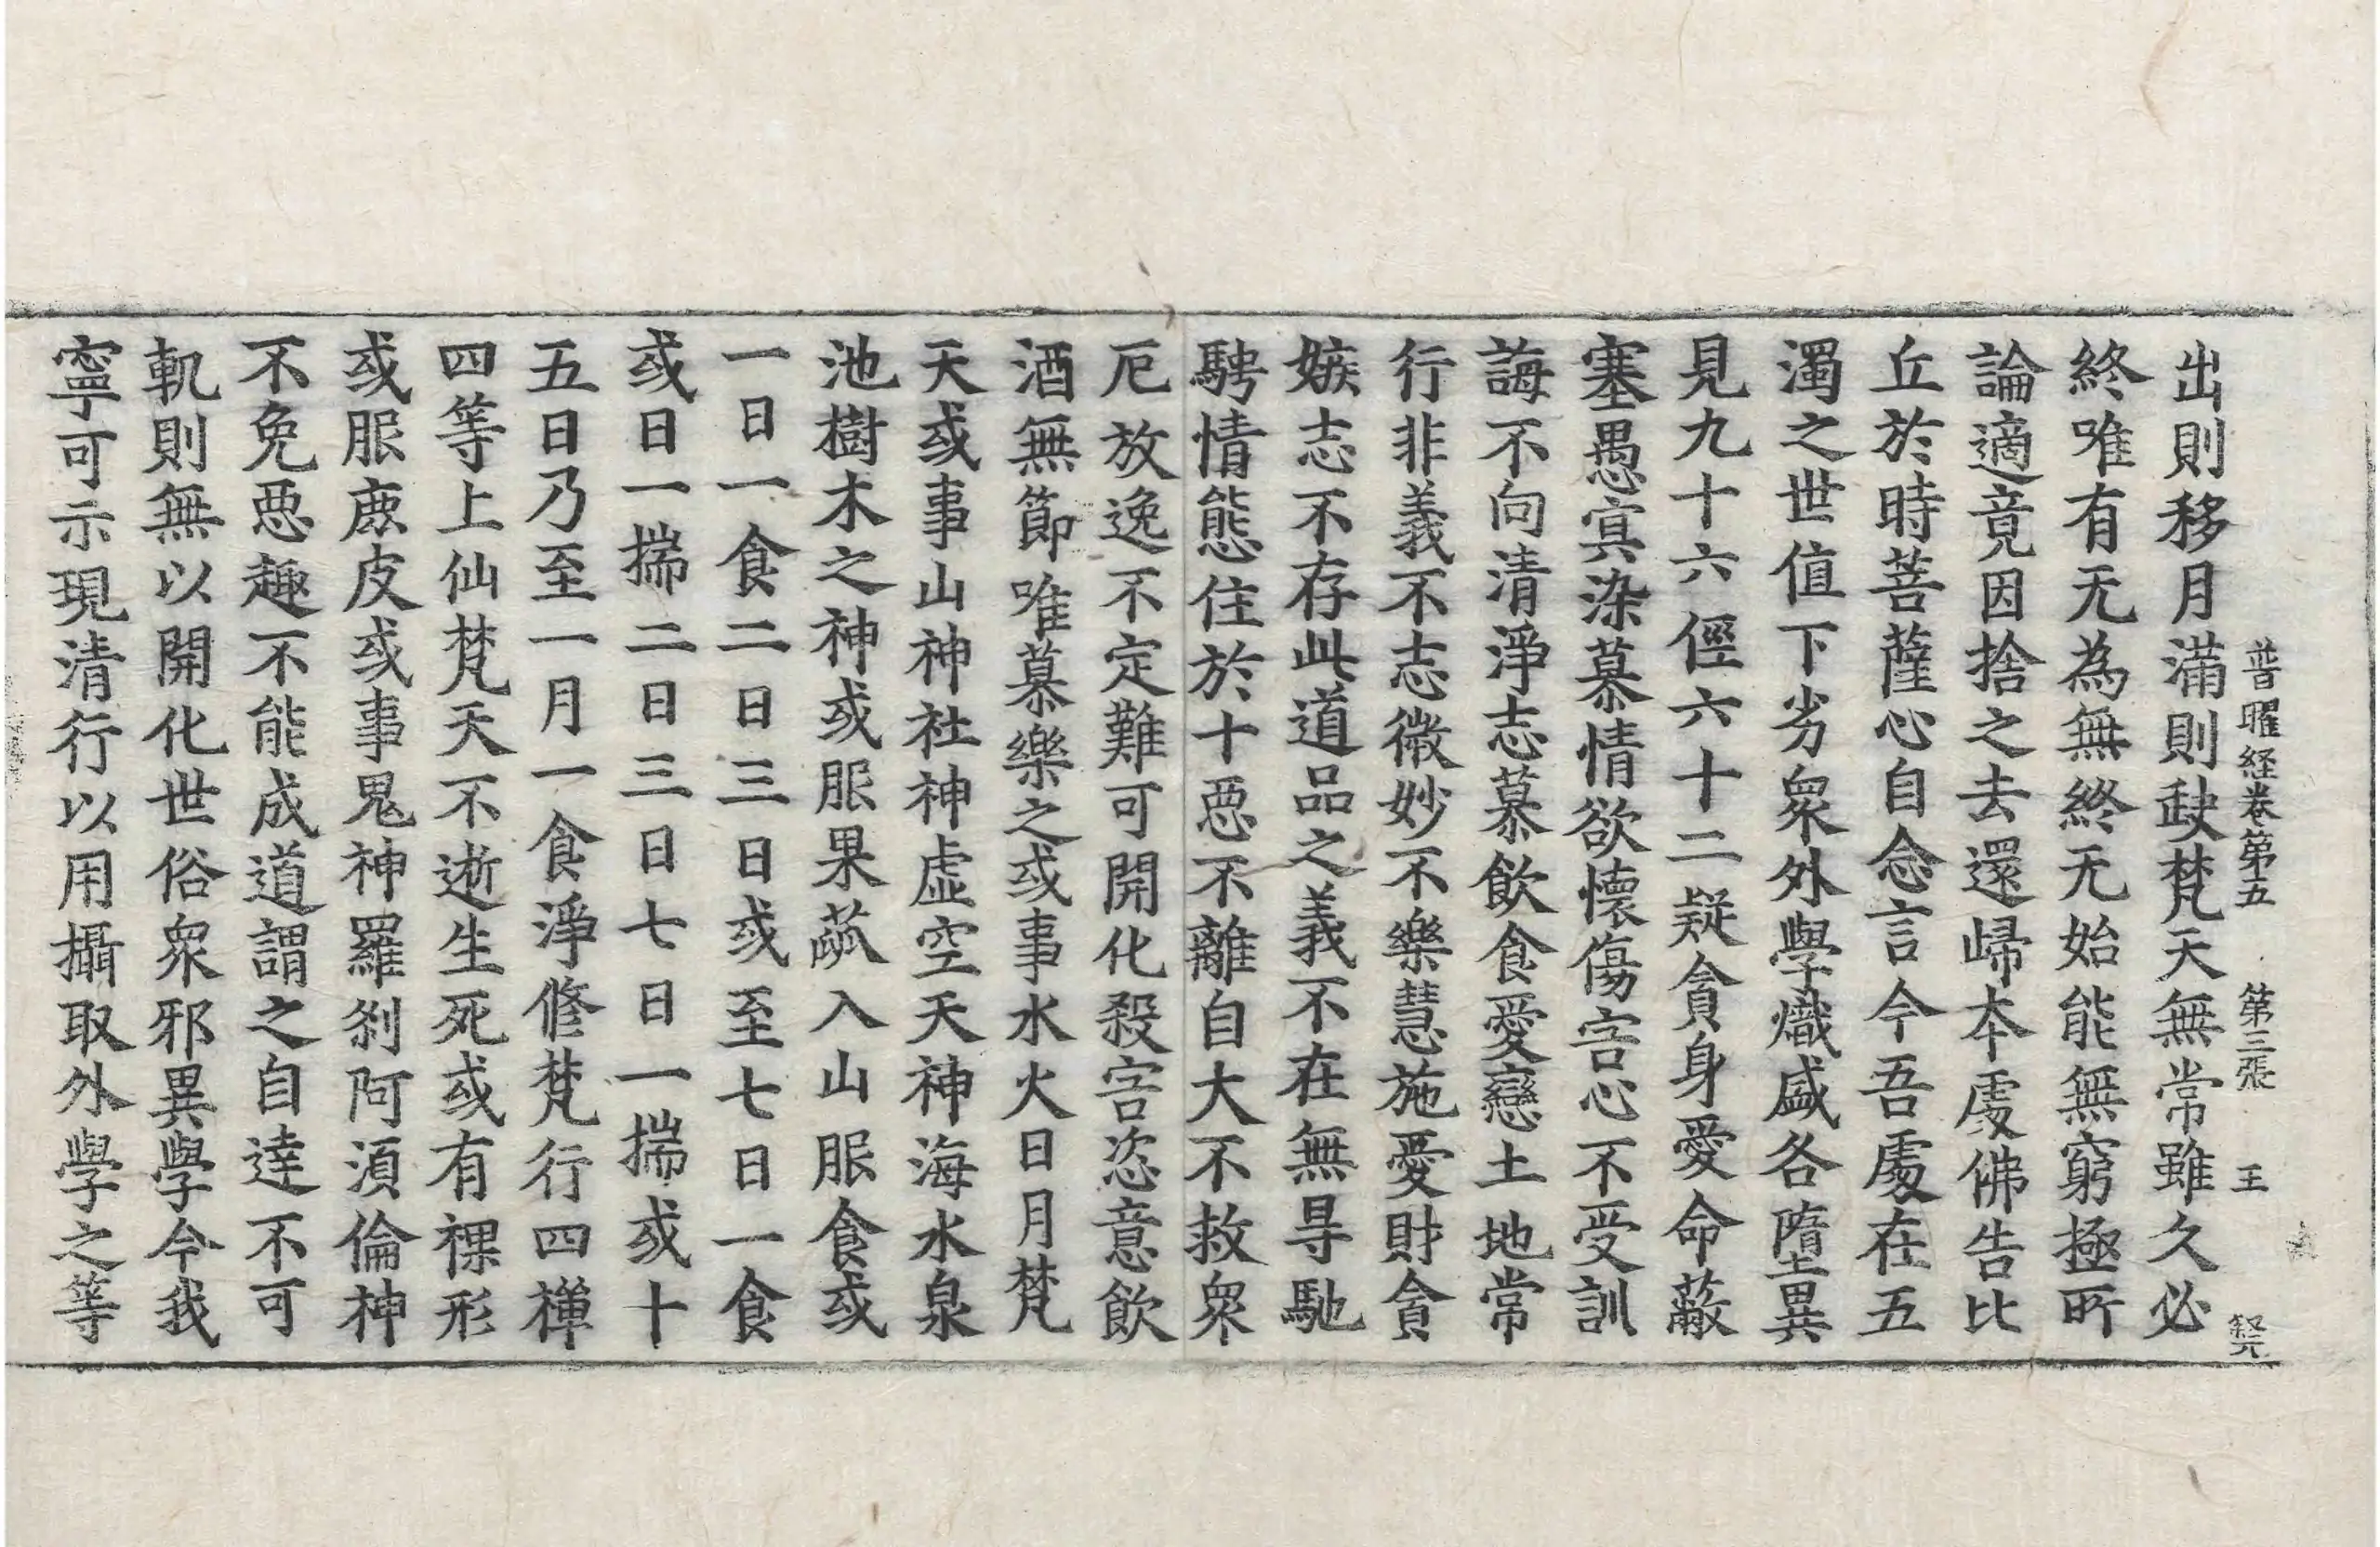 普曜経卷第五 第三張 王
出則移月滿則缺梵天無常雖久必
終唯有无為無終无始能無窮極所
論適竟因捨之去還歸本處佛告比
丘於時菩薩心自念言今吾處在五
濁之世值下劣眾外學熾盛各墮異
見九十六徑六十二疑貪身愛命蔽
塞愚冥染慕情欲懷傷害心不受訓
誨不向清淨志慕飲食愛戀土地常
行非義不志微妙不樂慧施愛財貪
嫉志不存此道品之義不在無㝵馳
騁情態住於十惡不離自大不救眾
厄放逸不定難可開化殺害恣意飲
酒無節唯慕樂之或事水火日月梵
天或事山神社神虛空天神海水泉
池樹木之神或服果蓏入山服食或
一日一食二日三日或至七日一食
或日一揣二日三日七日一揣或十
五日乃至一月一食淨修梵行四禪
四等上仙梵天不逝生死或有裸形
或服鹿皮或事鬼神羅剎阿須倫神
不免惡趣不能成道謂之自達不可
軌則無以開化世俗眾邪異學今我
寧可示現清行以用攝取外學之等